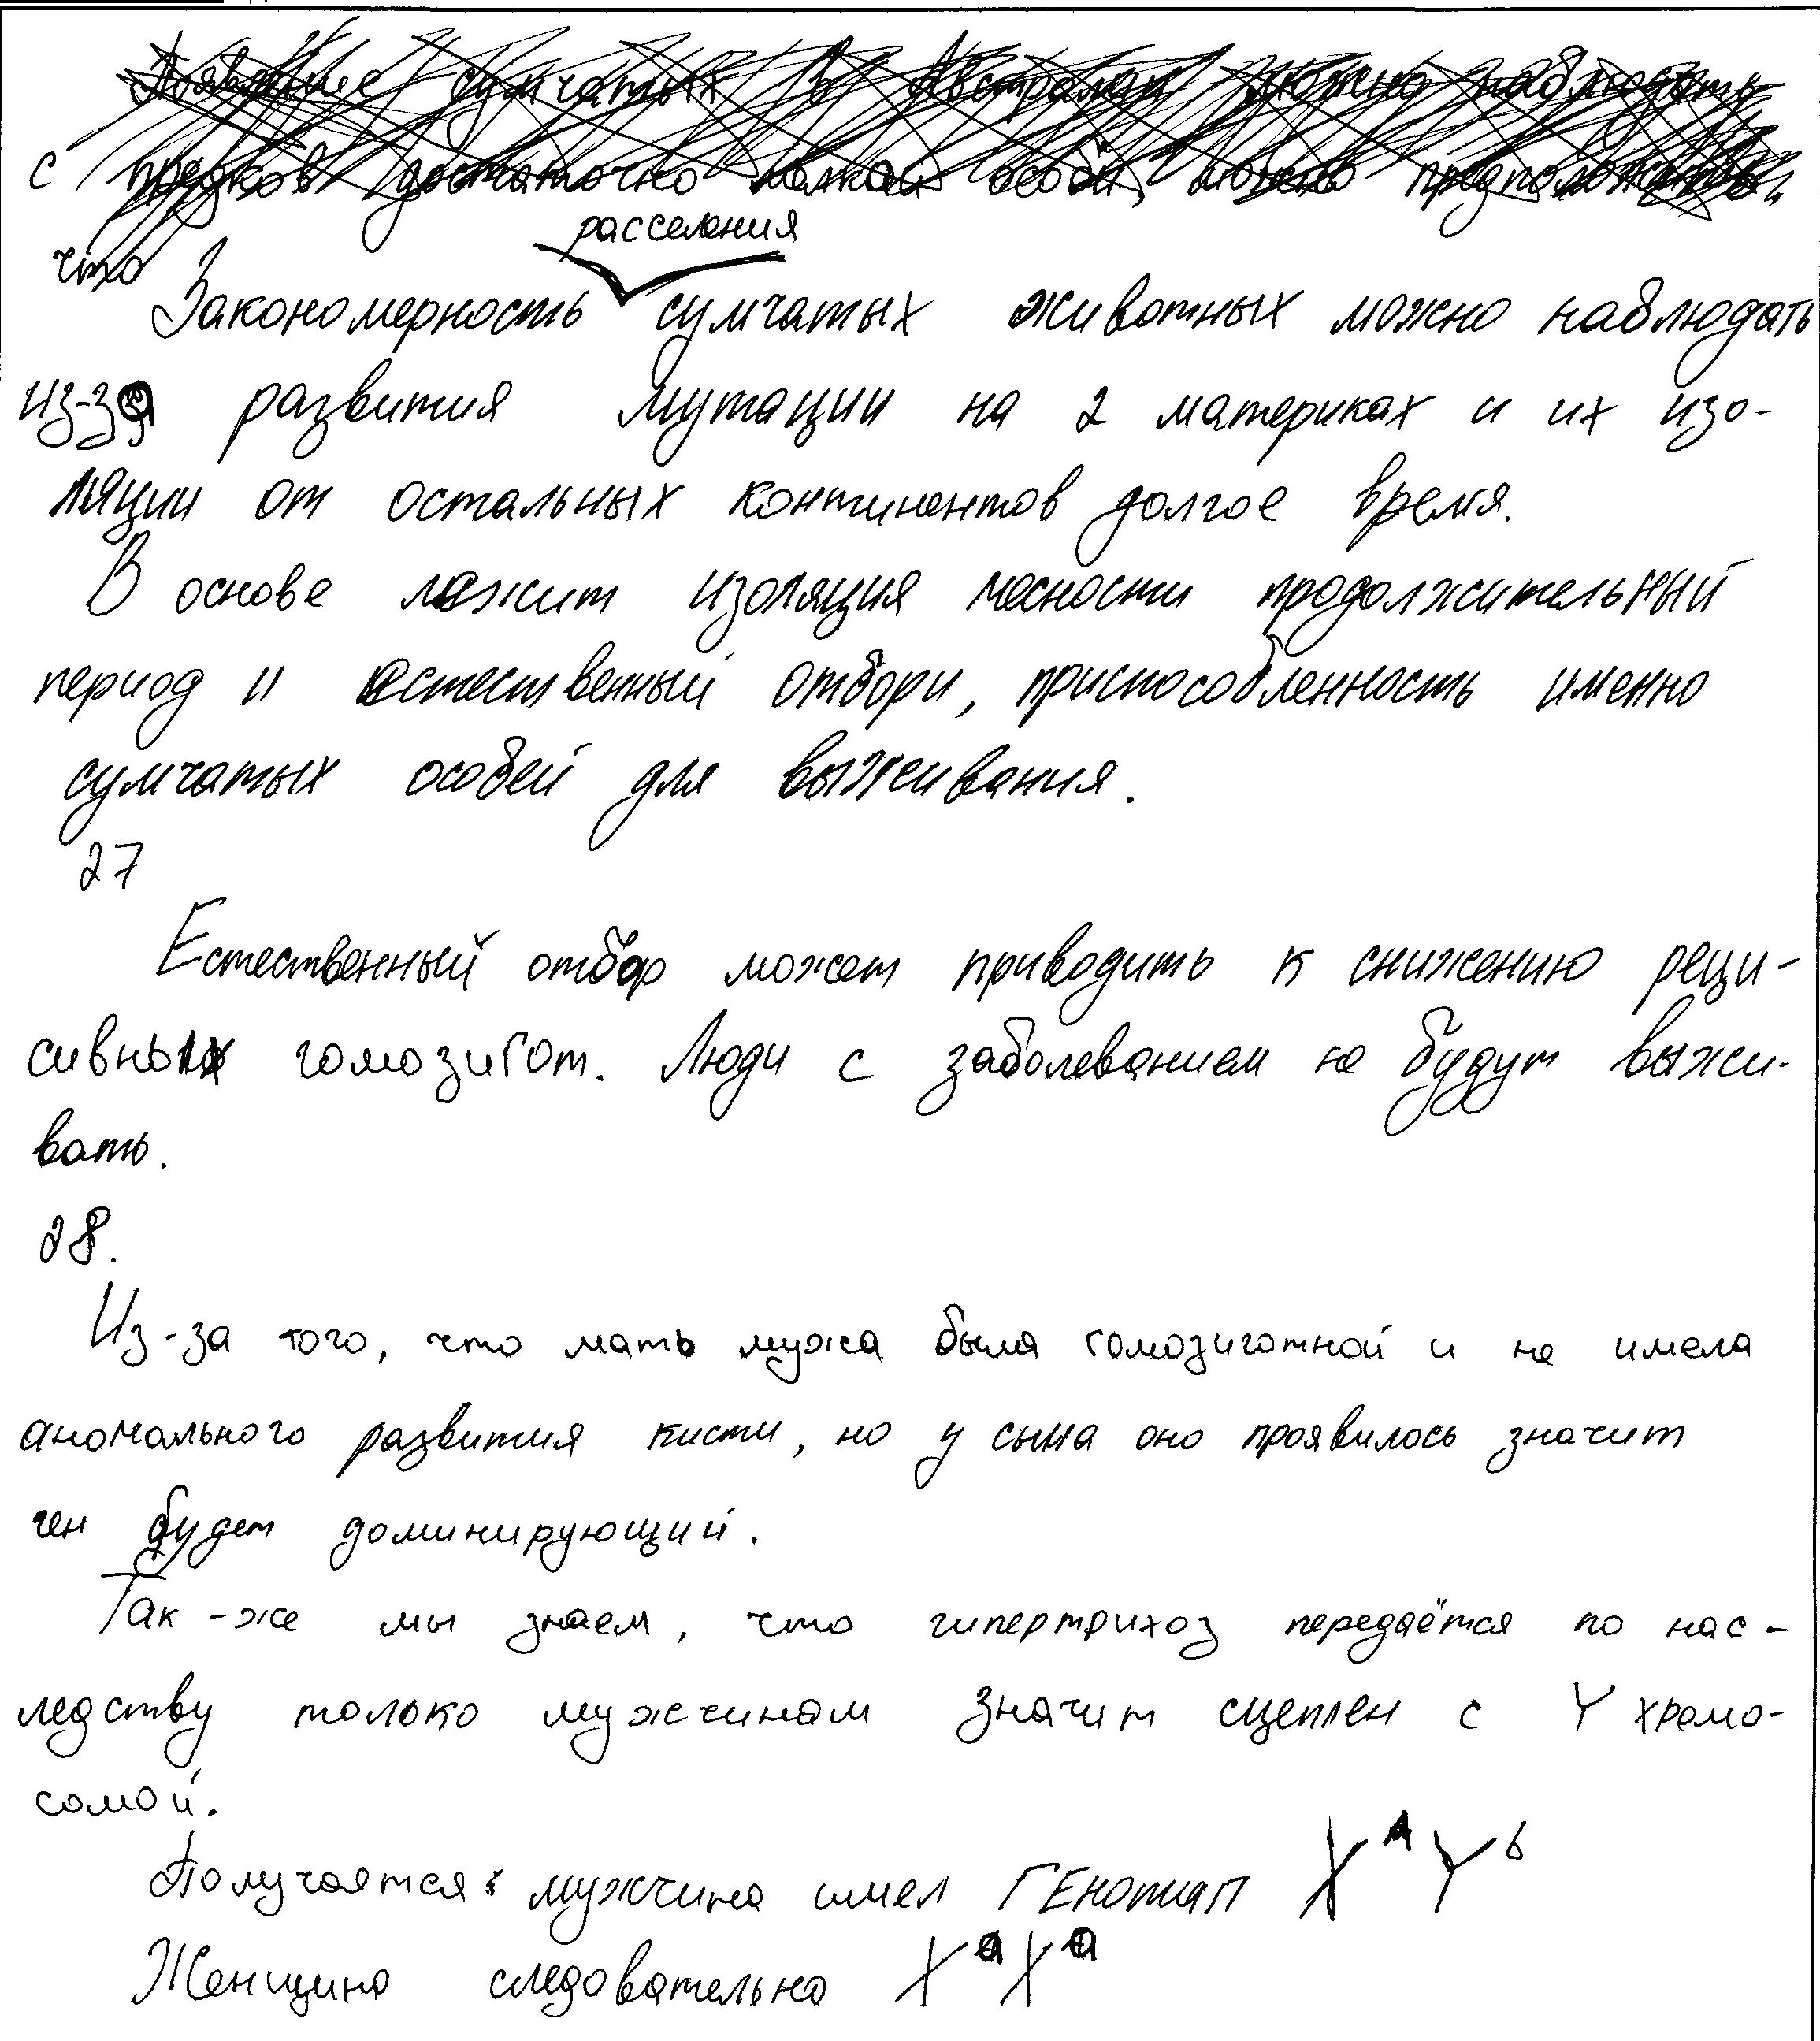 Появление сумчатых в Австралии можно наблюдать
с предков достаточно мелкой особи, можно предположить,
что
расселения
Закономерность сумчатых животных можно наблюдать
из-за развития мутации на 2 материках и их изо-
ляции от остальных континентов долгое время.
В основе лежит изоляция месности продолжительный
период и естественный отбори, приспособленность именно
сумчатых особей для выживания.
27
Естественный отбор может приводить к снижению реци-
сивных гомозигот. Люди с заболеванием не будут выжи-
вать.
28.
Из-за того, что мать мужа была гомозиготной и не имела
аномального развития кисти, но у сына оно проявилось значит
ген будет доминирующий.
Так-же мы знаем, что гипертрихоз передаётся по нас-
ледству только мужчинам значит сцеплен с Y хромо-
сомой.
Получается: мужчина имел ГЕнотип X^A Y^b
Женщина следовательно X^a X^a